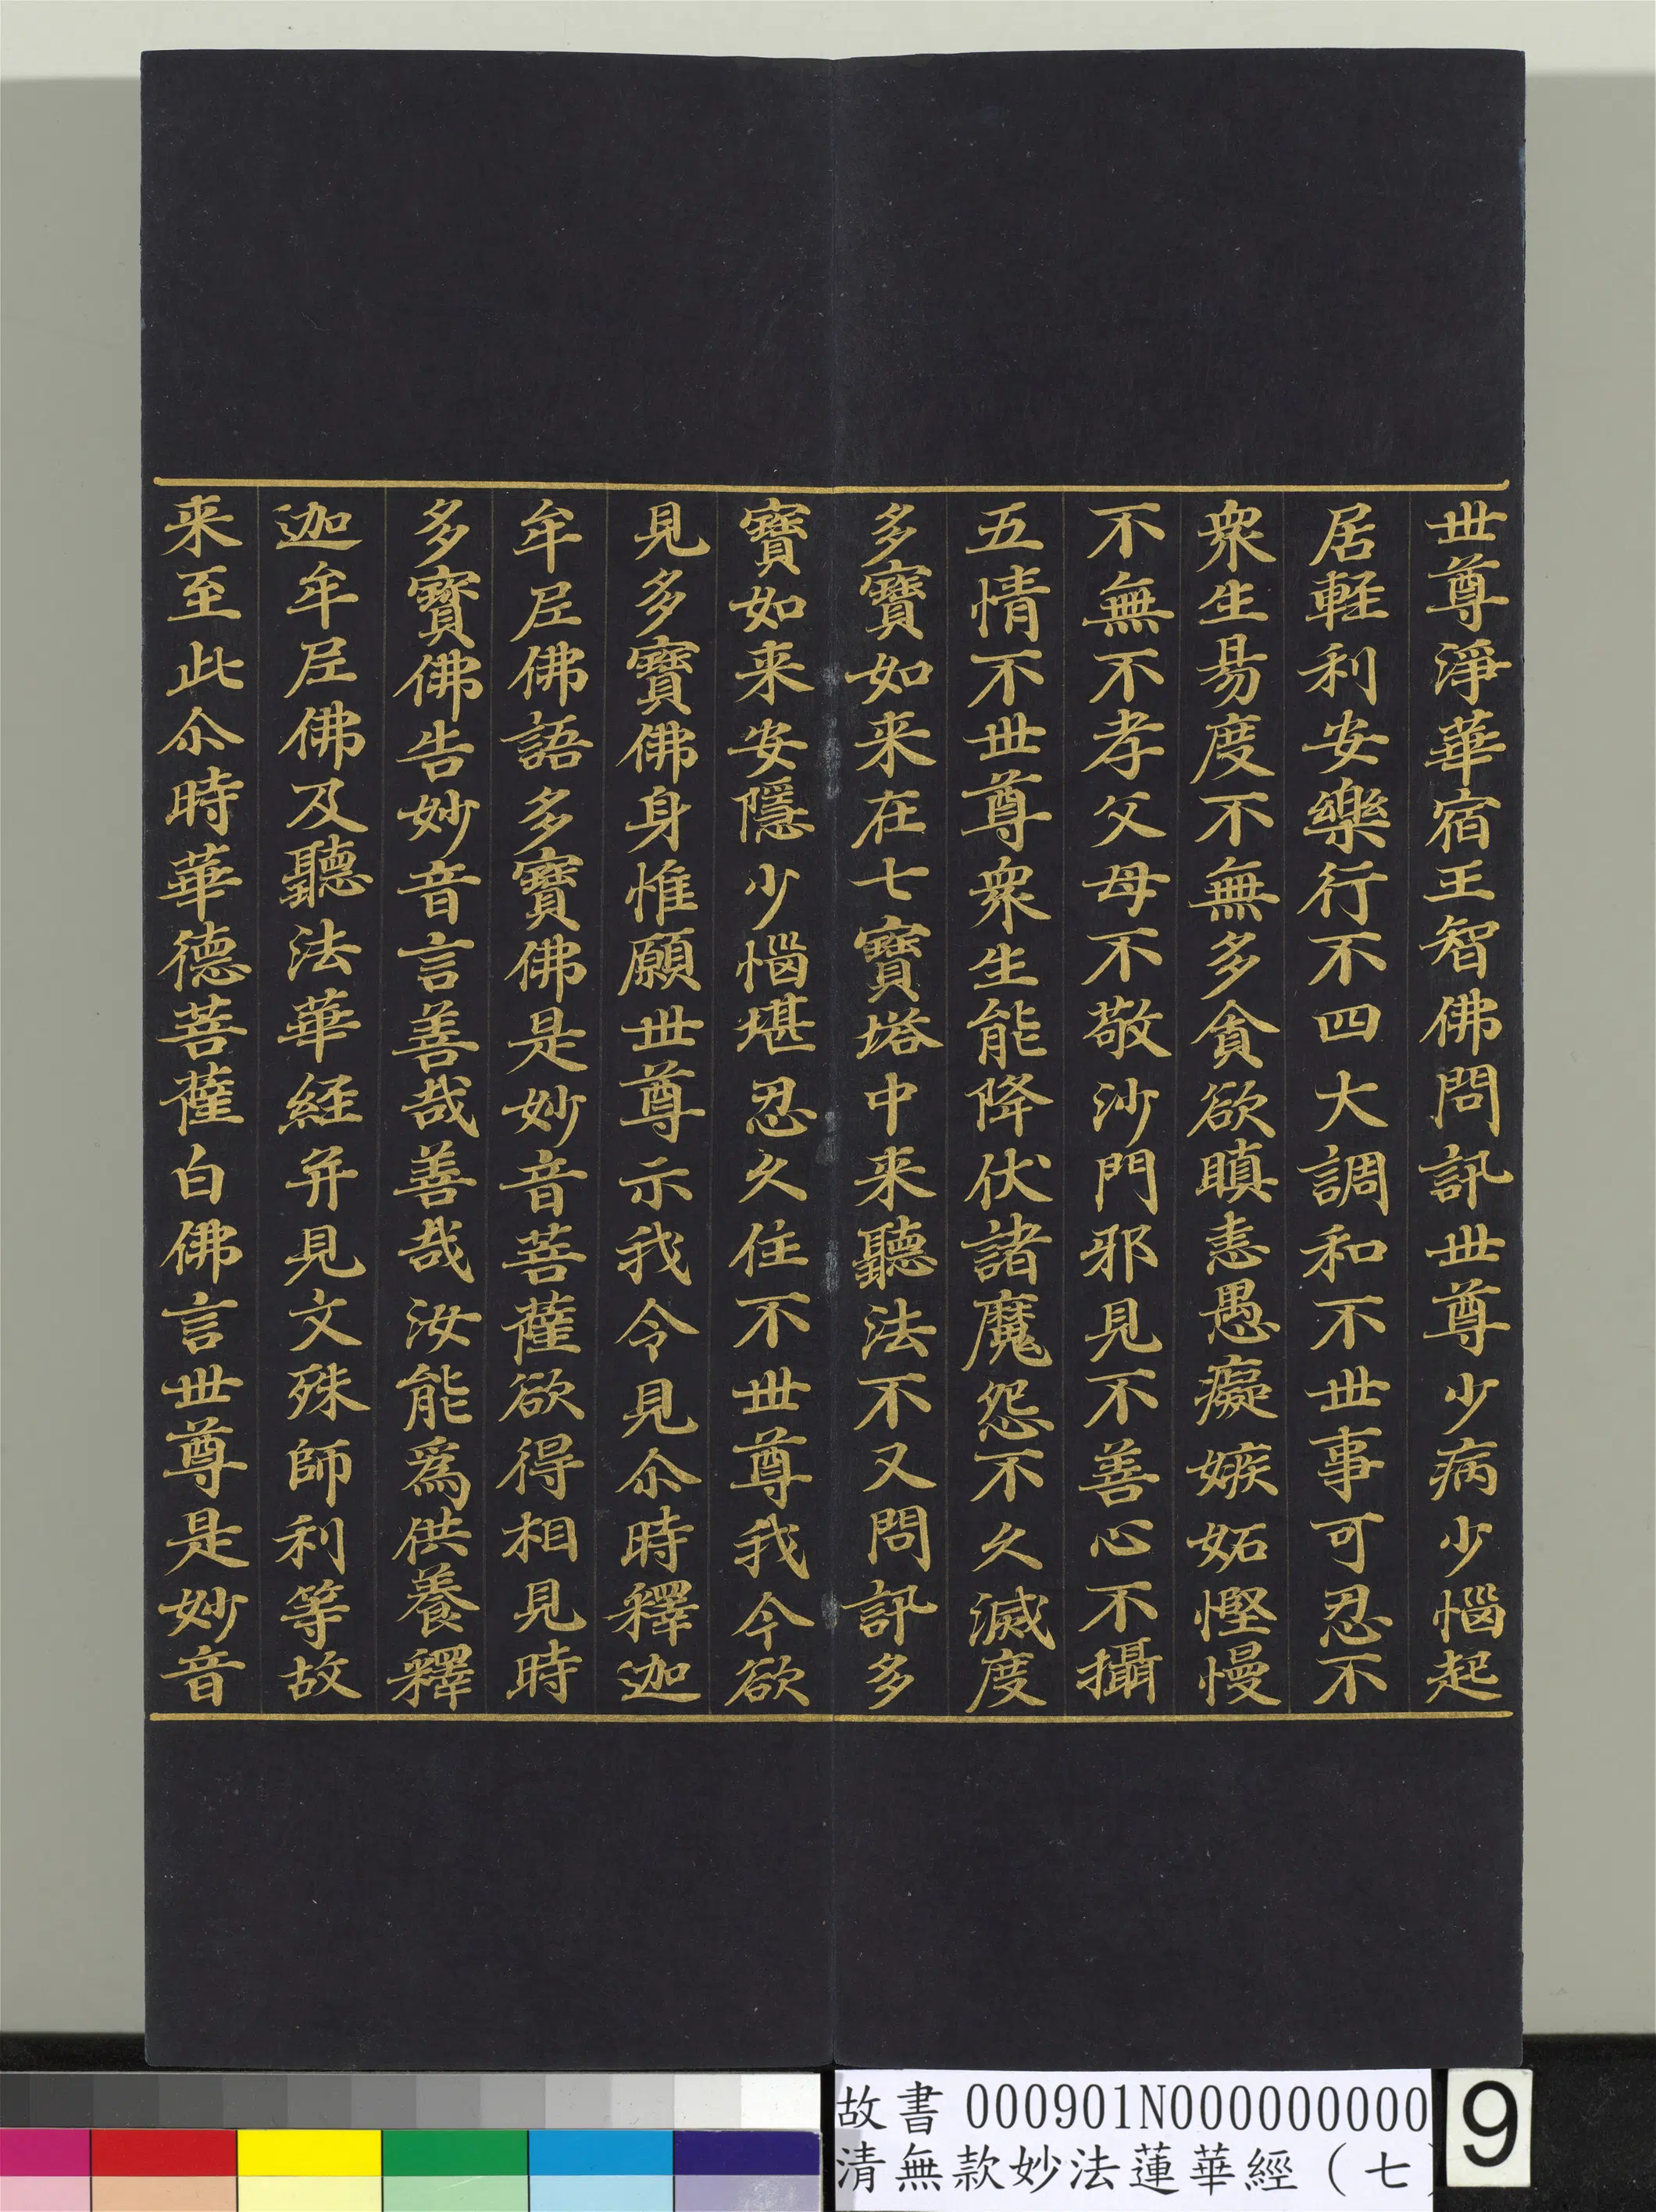 世尊淨華宿王智佛問訊世尊少病少惱起
居軽利安樂行不四大調和不世事可忍不
衆生易度不無多貪欲瞋恚愚癡嫉妬慳慢
不無不孝父母不敬沙門邪見不善心不攝
五情不世尊衆生能降伏諸魔怨不久滅度
多寶如来在七寶塔中来聽法不又問訊多
寶如来安隱少惱堪忍久住不世尊我今欲
見多寶佛身惟願世尊示我令見尒時釋迦
牟尼佛語多寶佛是妙音菩薩欲得相見時
多寶佛告妙音言善哉善哉汝能為供養釋
迦牟尼佛及聽法華経并見文殊師利等故
来至此尒時華德菩薩白佛言世尊是妙音
故書 000901N000000000
清無款妙法蓮華經（七
9